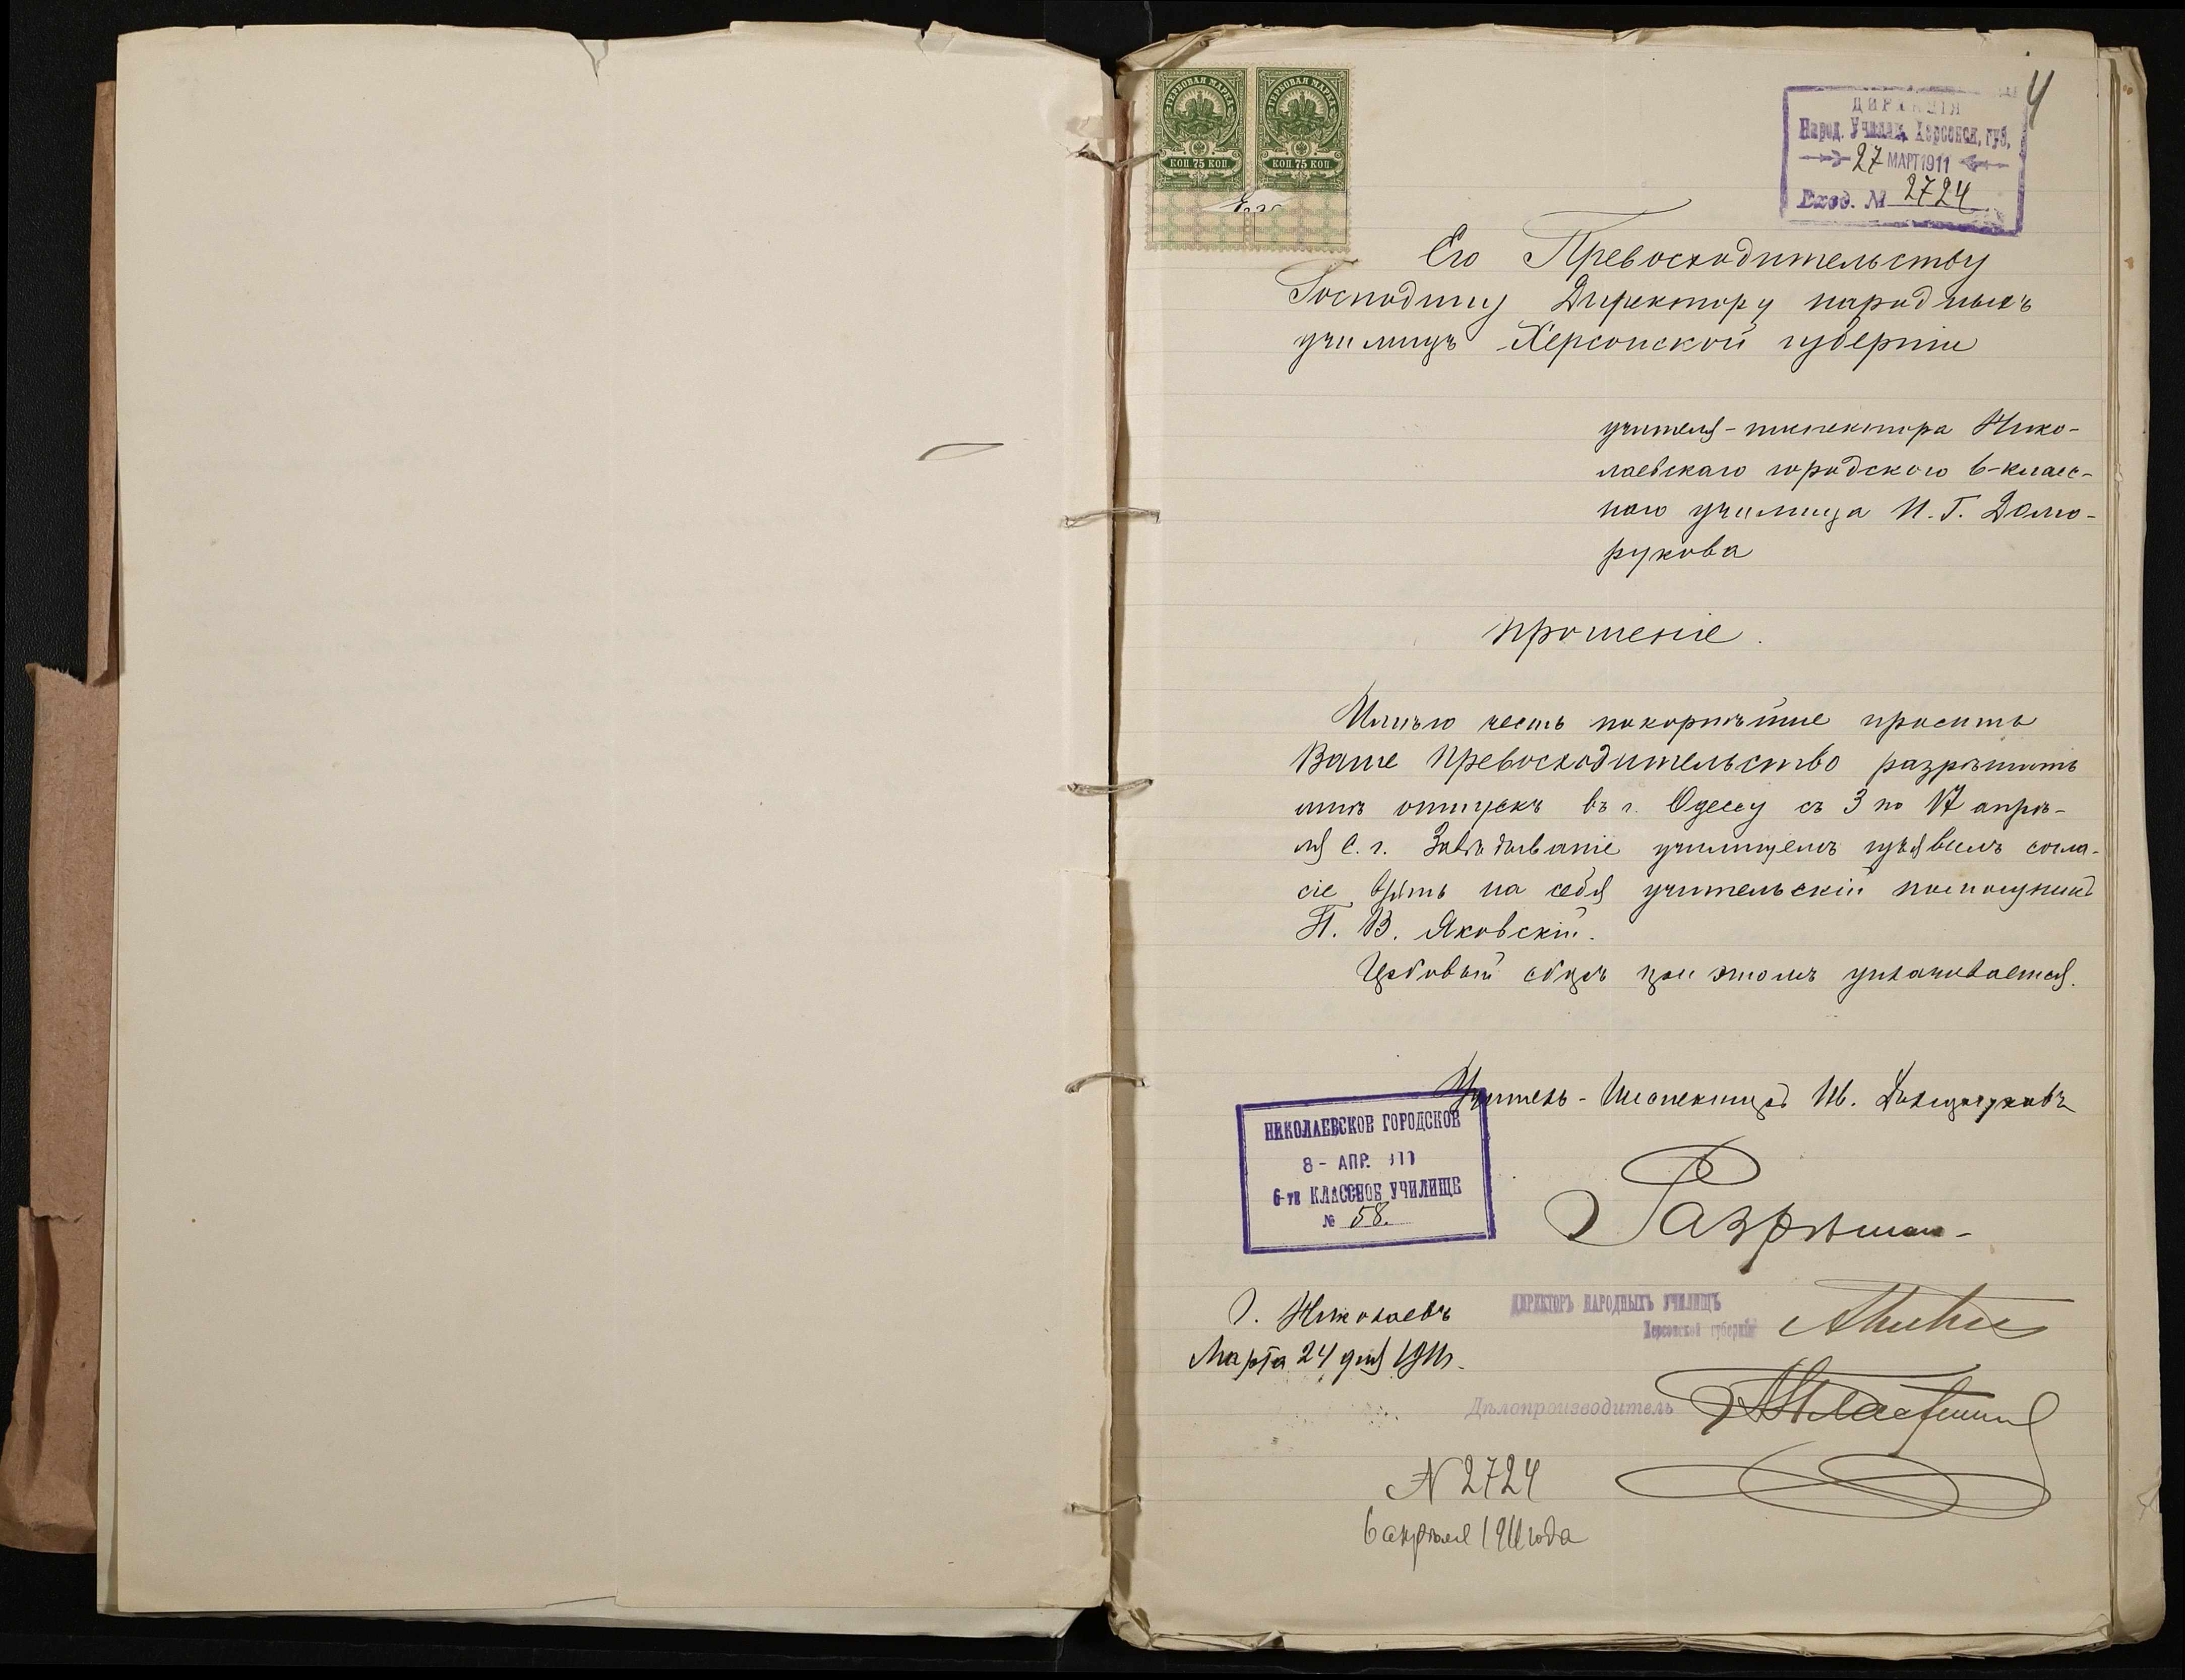 4
ГЕРБОВАЯ МАРКА ГЕРБОВАЯ МАРКА
КОП. 75 КОП. КОП. 75 КОП.
ДИРЕКЦІЯ
Народ. Училищ. Херсонск. губ.
27 МАРТ 1911
Вход. № 2724
Его Превосходительству
Господину Директору народныхъ
училищъ Херсонской губерніи
учителя-инспектора Нико-
лаевскаго городского 6-класс-
наго училища И. Г. Долго-
рукова
прошеніе.
Имѣю честь покорнѣйше просить
Ваше Превосходительство разрѣшить
мнѣ отпускъ въ г. Одессу съ 3 по 17 апрѣ-
ля с. г. Завѣдываніе училищемъ изъявилъ согла-
сіе взять на себя учительскій помощникъ
П. В. Яковскій.
Гербовый сборъ при этомъ уплачивается.
Учитель-Инспекторъ Ив. Долгоруковъ
НИКОЛАЕВСКОЕ ГОРОДСКОЕ
8 - АПР. 911
6-ти КЛАССНОЕ УЧИЛИЩЕ
№ 58.
Разрѣшаю
Г. Николаевъ
Марта 24 дня 1911 г.
ДИРЕКТОРЪ НАРОДНЫХЪ УЧИЛИЩЪ
Херсонской губерніи
Дѣлопроизводитель
N 2724
6 апрѣля 1911 года